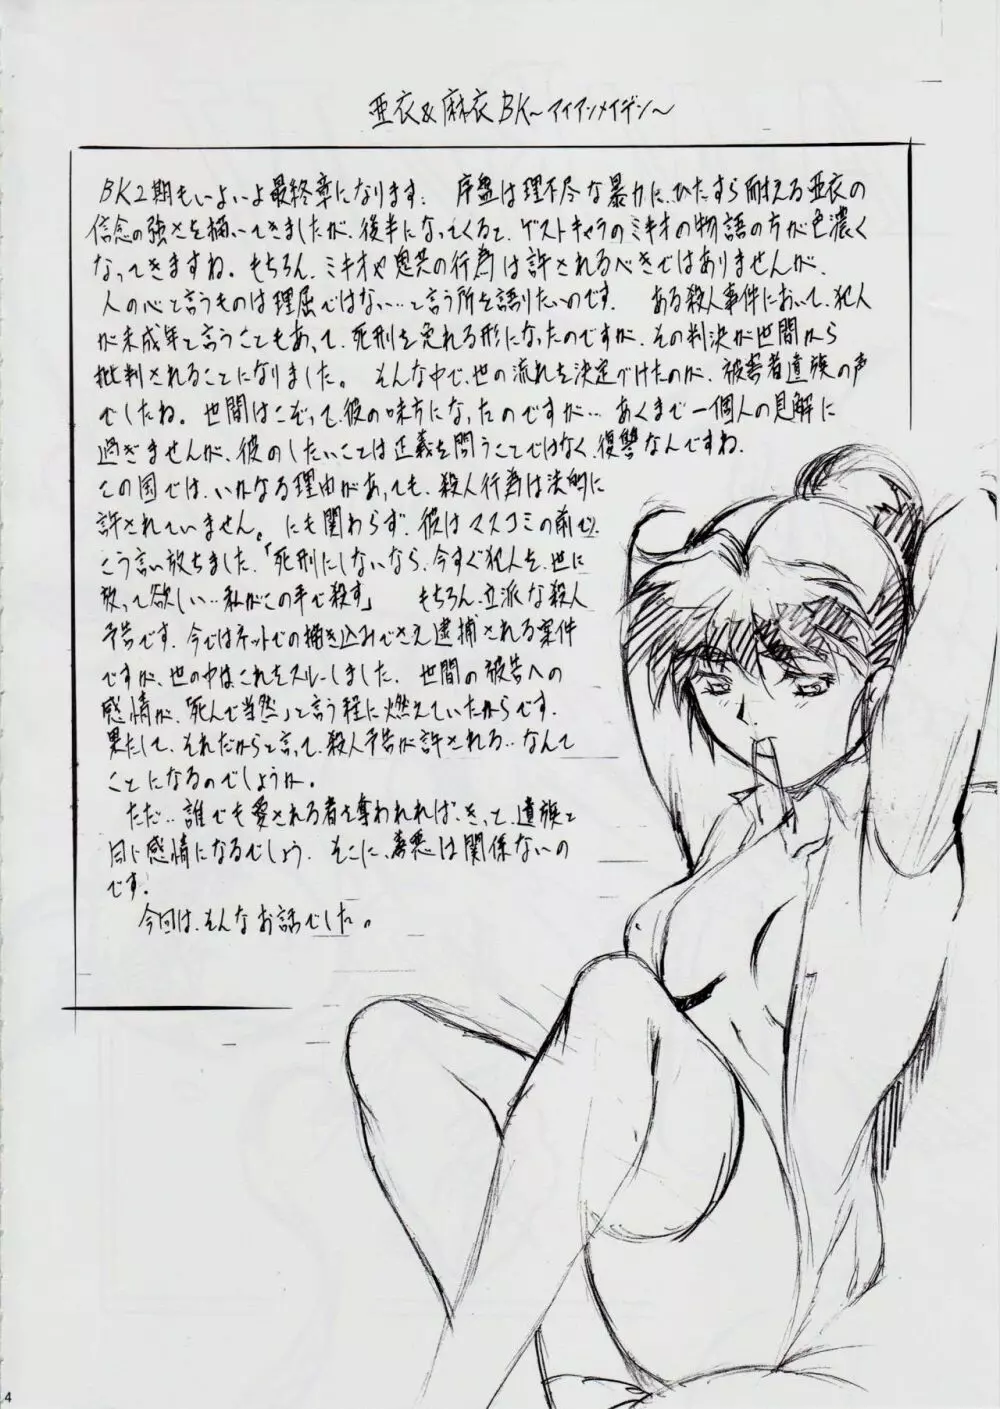 亜衣&麻衣BK～アイアンメイデン～
BK2期もいよいよ最終章になります。 序盤は理不尽な暴力に、ひたすら耐える亜衣の
信念の強さを描いてきましたが、後半になってくると、ゲストキャラのミキオの物語の方が色濃く
なってきますね。もちろん、ミキオや鬼共の行為は許されるべきではありませんが、
人の心と言うものは理屈ではない…と言う所を語りたいのです。 ある殺人事件において、犯人
が未成年と言うこともあって、死刑を免れる形になったのですが、その判決が世間から
批判されることになりました。 そんな中で、世の流れを決定づけたのが、被害者遺族の声
でしたね。世間はこぞって彼の味方になったのですが… あくまで一個人の見解に
過ぎませんが、彼のしたいことは正義を問うことではなく、復讐なんですね。
この国では、いかなる理由があっても、殺人行為は法的に
許されていません。にも関わらず、彼はマスコミの前で、
こう言い放ちました、「死刑にしないなら、今すぐ犯人を、世に
放って欲しい…私がこの手で殺す」 もちろん、立派な殺人
予告です。今ではネットでの書き込みでさえ逮捕される案件
ですが、世の中は、これをスルーしました。世間の被告への
感情が、「死んで当然」と言う程に燃えていたからです。
果たして、それだからと言って、殺人予告が許される…なんて
ことになるのでしょうか。
ただ…誰でも愛される者を奪われれば、きっと、遺族と
同じ感情になるでしょう。そこに、善悪は関係ないの
です。
今回は、そんなお話でした。
4